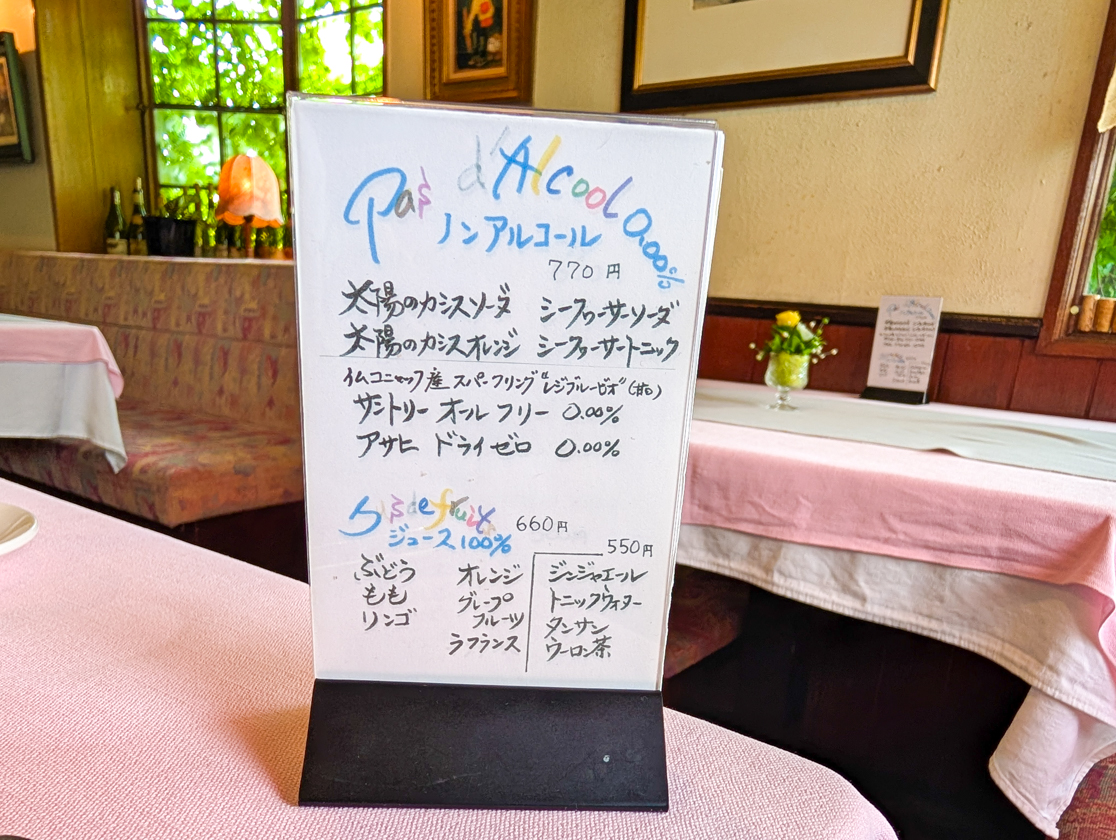 Pas d'Alcool 0.00%
ノンアルコール
770円
太陽のカシスソーダ シークヮーサーソーダ
太陽のカシスオレンジ シークヮーサートニック
サントリー オールフリー 0.00%
アサヒ ドライゼロ 0.00%
de fruit
660円
ジュース100%
550円
ぶどう オレンジ ジンジャエール
もも グレープ トニックウォーター
フルーツ
リンゴ タンサン
ラフランス ウーロン茶